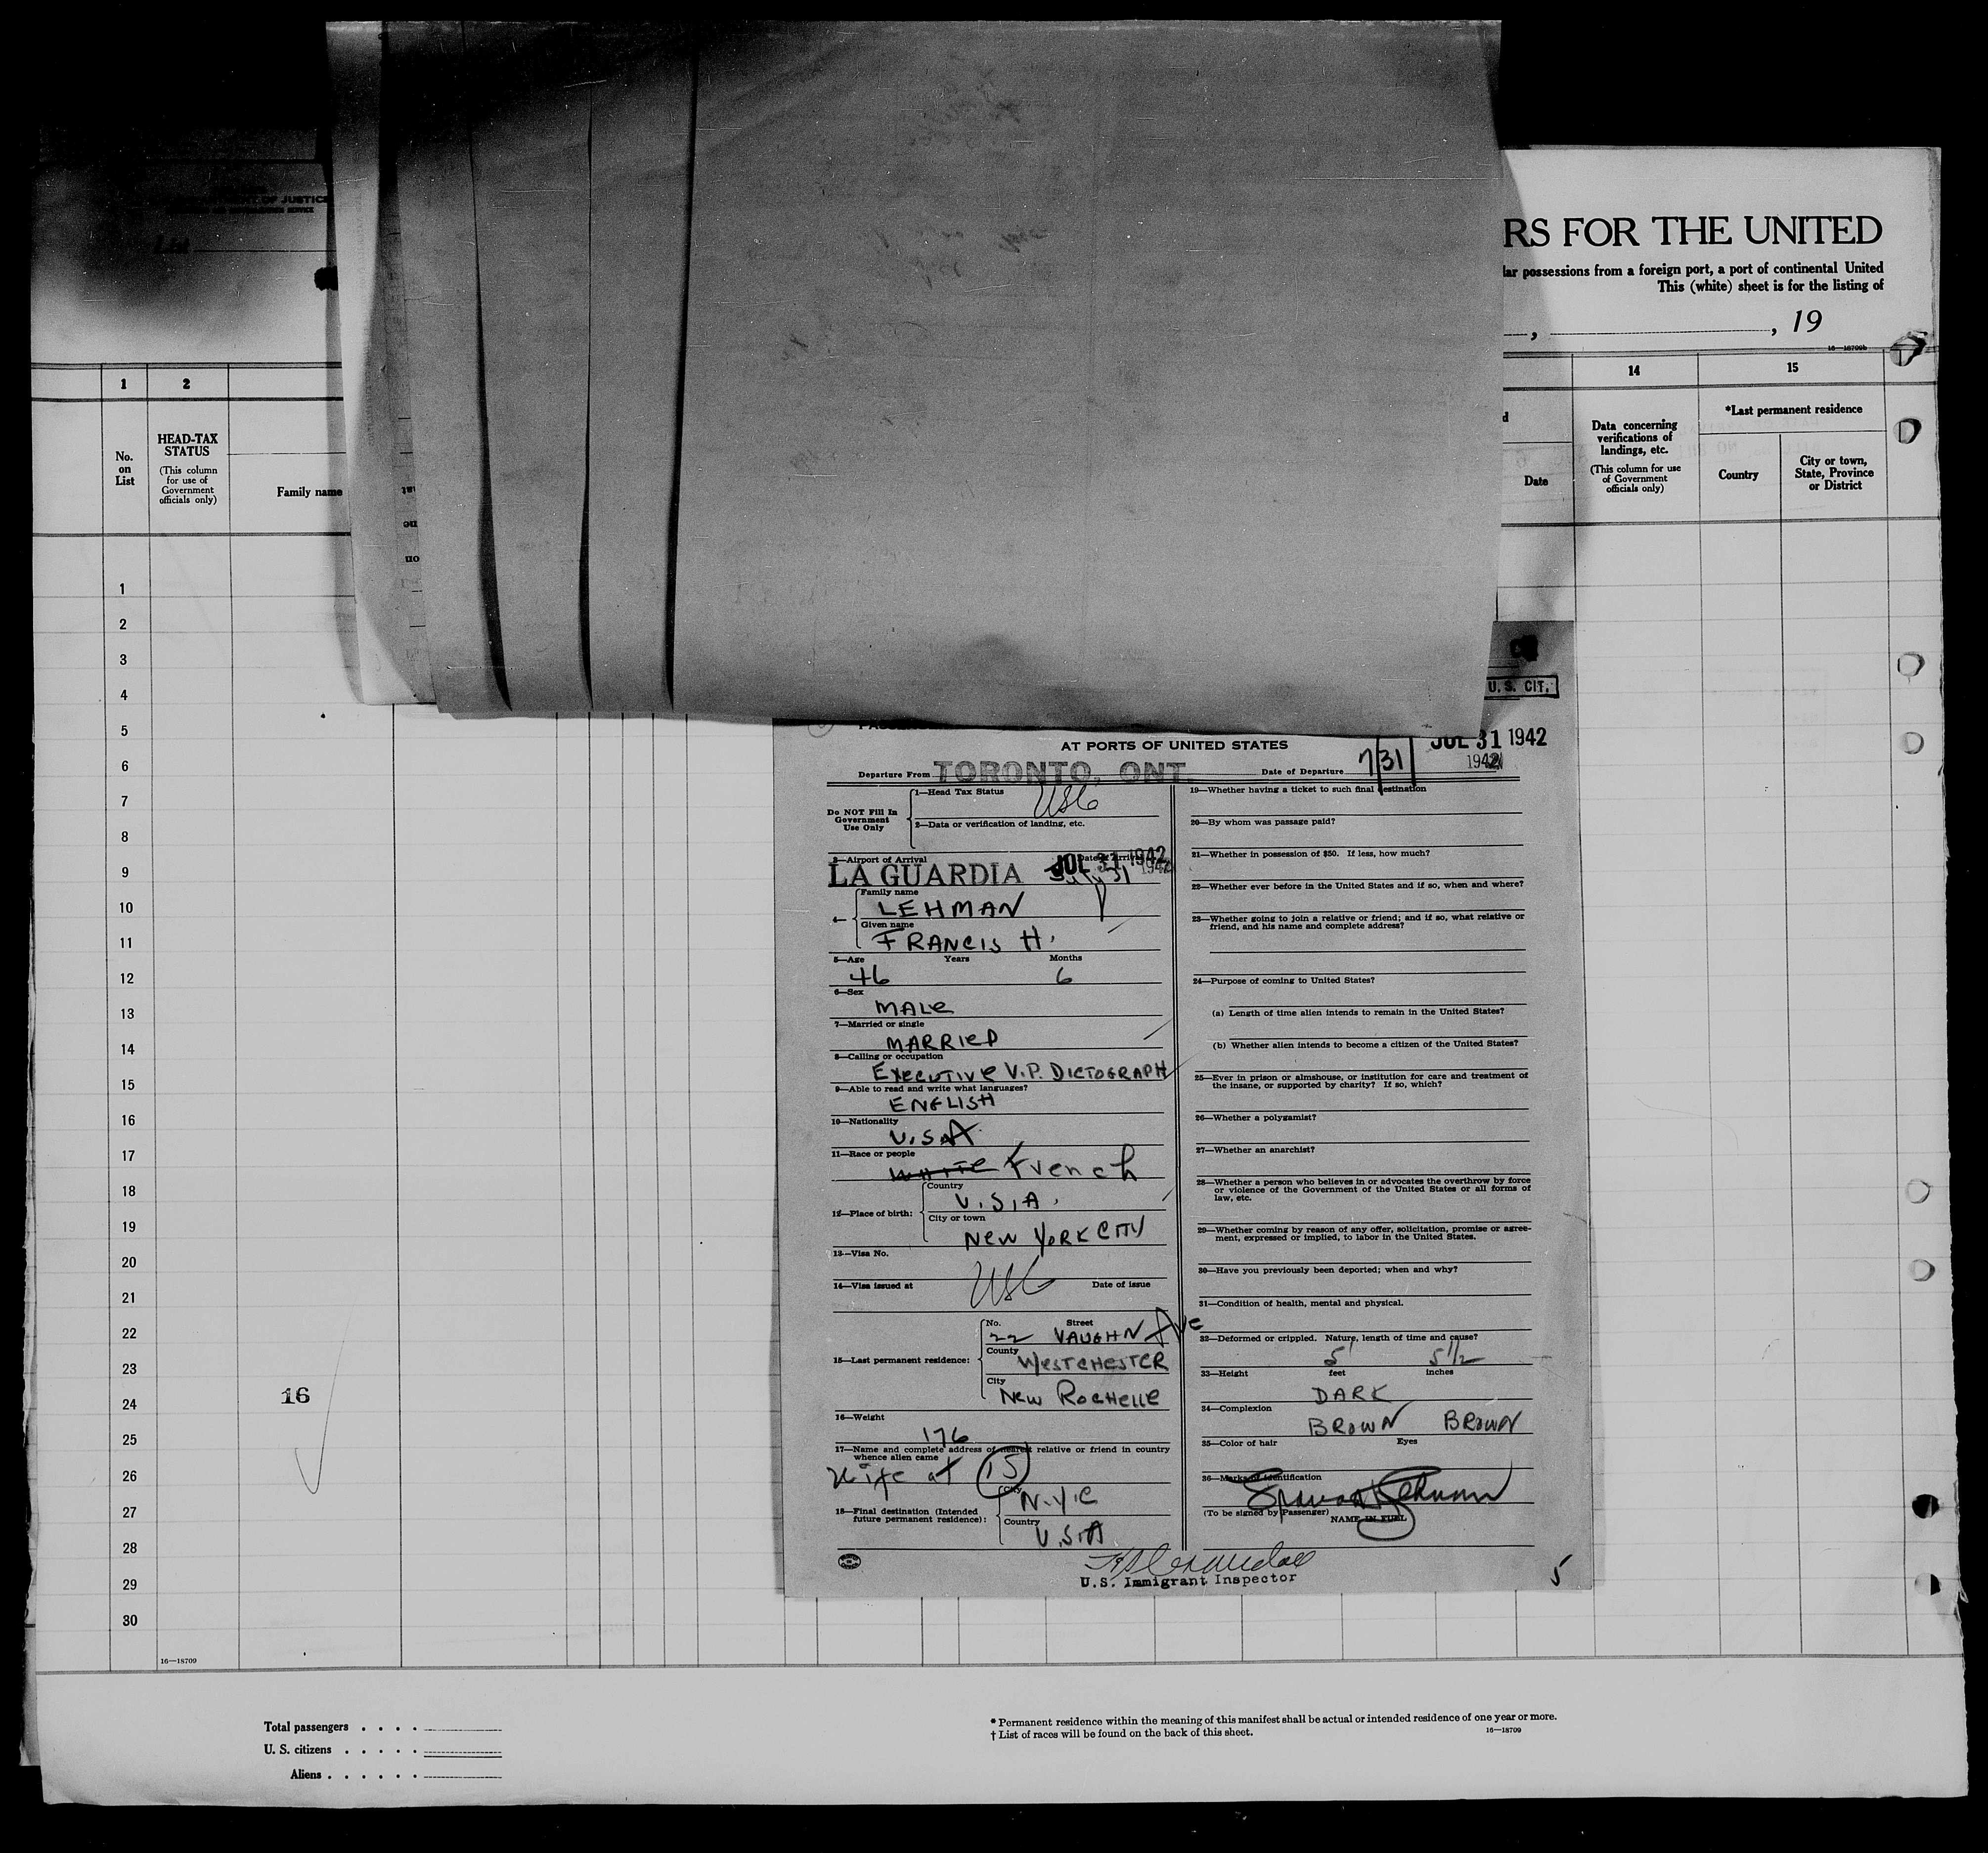 OF JUSTICE
List
RS FOR THE UNITED
lar possessions from a foreign port, a port of continental United
This (white) sheet is for the listing of
, , 19
16—18709b
1 2 14 15
No. on List
HEAD-TAX STATUS
(This column for use of Government officials only)
Family name
Date
Data concerning verifications of landings, etc.
(This column for use of Government officials only)
*Last permanent residence
Country
City or town, State, Province or District
1
2
3
4
5
6
7
8
9
10
11
12
13
14
15
16
17
18
19
20
21
22
23
24
25
26
27
28
29
30
16
16—18709
U. S. CIT.
JUL 31 1942
AT PORTS OF UNITED STATES
Departure From TORONTO, ONT. Date of Departure 7/31 1942
Do NOT Fill In Government Use Only
1—Head Tax Status USC
2—Data or verification of landing, etc.
3—Airport of Arrival Date of Arrival
LA GUARDIA JUL 31 1942 July 31 1942
4— Family name
LEHMAN
Given name
FRANCIS H.
5—Age Years Months
46 6
6—Sex
MALE
7—Married or single
MARRIED
8—Calling or occupation
EXECUTIVE V.P. DICTOGRAPH
9—Able to read and write what languages?
ENGLISH
10—Nationality
U.S.A.
11—Race or people
WHITE French
12—Place of birth: Country
U.S.A.
City or town
NEW YORK CITY
13—Visa No.
14—Visa issued at USC Date of issue
15—Last permanent residence: No. Street
22 VAUGHN Ave
County
WESTCHESTER
City
NEW ROCHELLE
16—Weight
176
17—Name and complete address of nearest relative or friend in country
whence alien came
Wife at 15
18—Final destination (Intended future permanent residence): City
N.Y.C
Country
U.S.A
19—Whether having a ticket to such final destination
20—By whom was passage paid?
21—Whether in possession of $50. If less, how much?
22—Whether ever before in the United States and if so, when and where?
23—Whether going to join a relative or friend; and if so, what relative or
friend, and his name and complete address?
24—Purpose of coming to United States?
(a) Length of time alien intends to remain in the United States?
(b) Whether alien intends to become a citizen of the United States?
25—Ever in prison or almshouse, or institution for care and treatment of
the insane, or supported by charity? If so, which?
26—Whether a polygamist?
27—Whether an anarchist?
28—Whether a person who believes in or advocates the overthrow by force
or violence of the Government of the United States or all forms of
law, etc.
29—Whether coming by reason of any offer, solicitation, promise or agree-
ment, expressed or implied, to labor in the United States.
30—Have you previously been deported; when and why?
31—Condition of health, mental and physical.
32—Deformed or crippled. Nature, length of time and cause?
5' 5 1/2
33—Height feet inches
DARK
34—Complexion
BROWN BROWN
35—Color of hair Eyes
36—Marks of identification
(To be signed by Passenger) NAME IN FULL
U.S. Immigrant Inspector
5
Total passengers . . . .
U. S. citizens . . . . .
Aliens . . . . . .
* Permanent residence within the meaning of this manifest shall be actual or intended residence of one year or more.
† List of races will be found on the back of this sheet.
16—18709